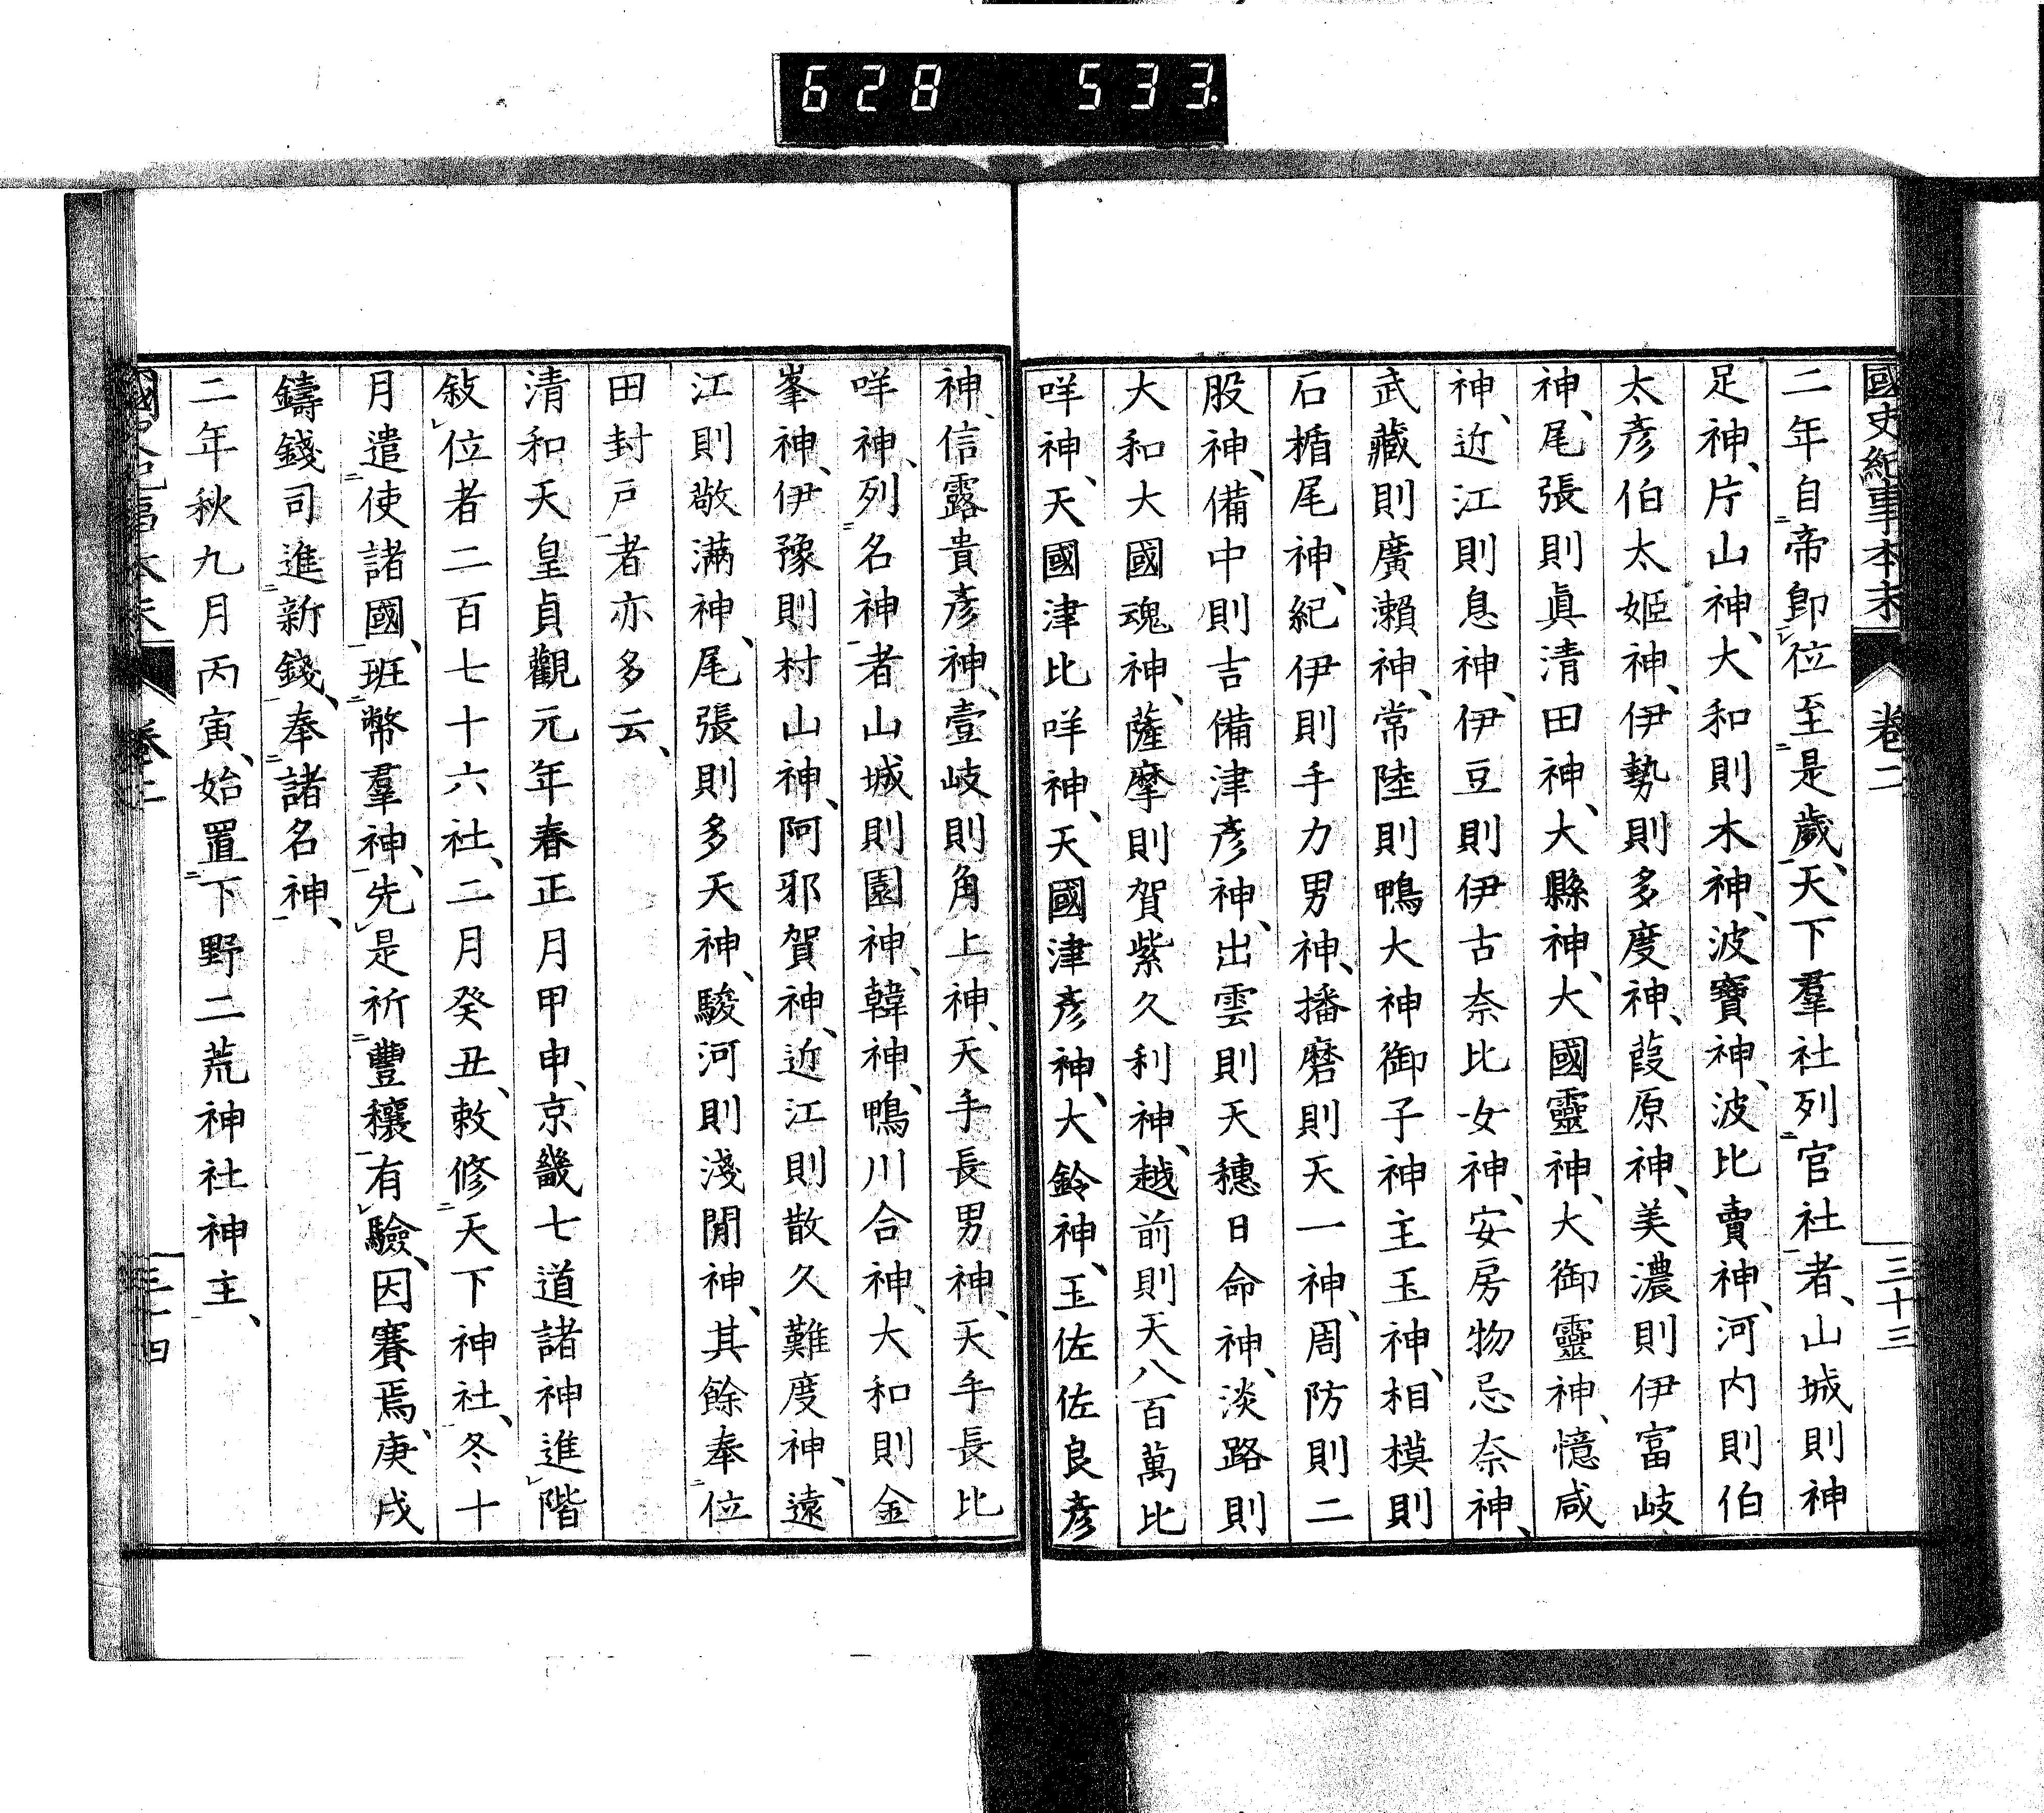 628 533
國史紀事本末 卷二 三十三
二年自帝卽位至是歲、天下羣社列官社者、山城則神
足神、片山神、大和則木神、波寶神、波比賣神、河内則伯
太彦伯太姬神、伊勢則多度神、葭原神、美濃則伊富岐
神、尾張則眞清田神、大縣神、大國靈神、大御靈神、憶咸
神、近江則息神、伊豆則伊古奈比女神、安房物忌奈神、
武藏則廣瀨神、常陸則鴨大神御子神主玉神、相模則
石楯尾神、紀伊則手力男神、播磨則天一神、周防則二
股神、備中則吉備津彦神、出雲則天穗日命神、淡路則
大和大國魂神、薩摩則賀紫久利神、越前則天八百萬比
咩神、天國津比咩神、天國津彦神、大鈴神、玉佐佐良彦
神、信露貴彦神、壹岐則角上神、天手長男神、天手長比
咩神、列名神者山城則園神、韓神、鴨川合神、大和則金
峯神、伊豫則村山神、阿邪賀神、近江則散久難度神、遠
江則敬滿神、尾張則多天神、駿河則淺閒神、其餘奉位
田封戸者亦多云、
清和天皇貞觀元年春正月甲申、京畿七道諸神進階
敍位者二百七十六社、二月癸丑、敕修天下神社、冬十
月遣使諸國、班幣羣神、先是祈豐穰有驗、因賽焉、庚戌
鑄錢司進新錢、奉諸名神、
二年秋九月丙寅、始置下野二荒神社神主、
國史紀事本末 卷二 三十四